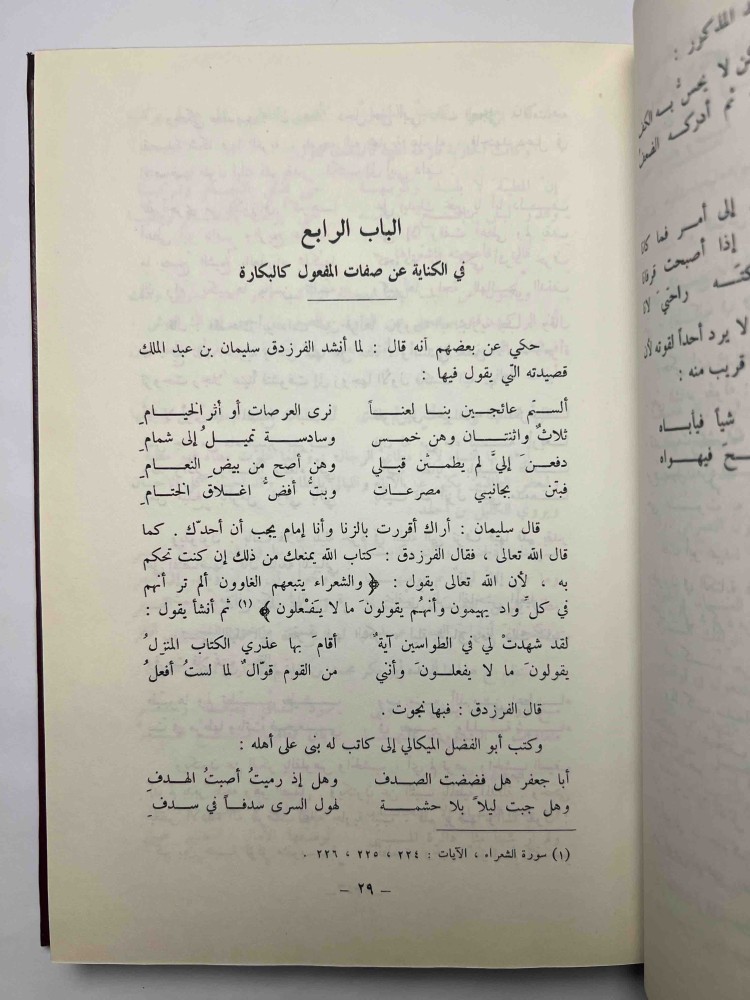 الباب الرابع
في الكناية عن صفات المفعول كالبكارة
حكي عن بعضهم أنه قال : لما أنشد الفرزدق سليمان بن عبد الملك
قصيدته التّي يقول فيها :
ألستم عائجين بنا لعناً نرى العرصات أو أثر الخيامِ
ثلاثٌ واثنتان وهن خمس وسادسة تميلُ إلى شمامِ
دفعنَ إليَّ لم يطمثن قبلي وهن أصح من بيض النعامِ
فبتن بجانبي مصرعات وبتُ أفضُ اغلاقَ الختامِ
قال سليمان : أراك أقررت بالزنا وأنا إمام يجب أن أحدّك . كما
قال الله تعالى ، فقال الفرزدق : كتاب الله يمنعك من ذلك إن كنت تحكم
به ، لأن الله تعالى يقول : ﴿ والشعراء يتبعهم الغاوون ألم تر أنهم
في كلّ واد يهيمون وأنهُم يقولونَ ما لا يَفْعلون ﴾ (١) ثم أنشأ يقول :
لقد شهدتْ لي في الطواسين آيةٌ أقامَ بها عذري الكتاب المنزلُ
يقولونَ ما لا يفعلونَ وأنني من القوم قوّالٌ لما لستُ أفعلُ
قال الفرزدق : فبها نجوت .
وكتب أبو الفضل الميكالي إلى كاتب له بنى على أهله :
أبا جعفر هل فضضت الصدف وهل إذ رميتُ أصبتُ الهدف
وهل جبت ليلاً بلا حشمة لهول السرى سدفاً في سدفِ
(١) سورة الشعراء ، الآيات : ٢٢٤ ، ٢٢٥ ، ٢٢٦ .
– ٢٩ –
المذكور :
ثم أدركه
إلى أمر فما
إذا أصبحت
راحتي
لا يرد أحداً لقوته لأن
قريب منه :
شيأ فيأباه
فيهواه